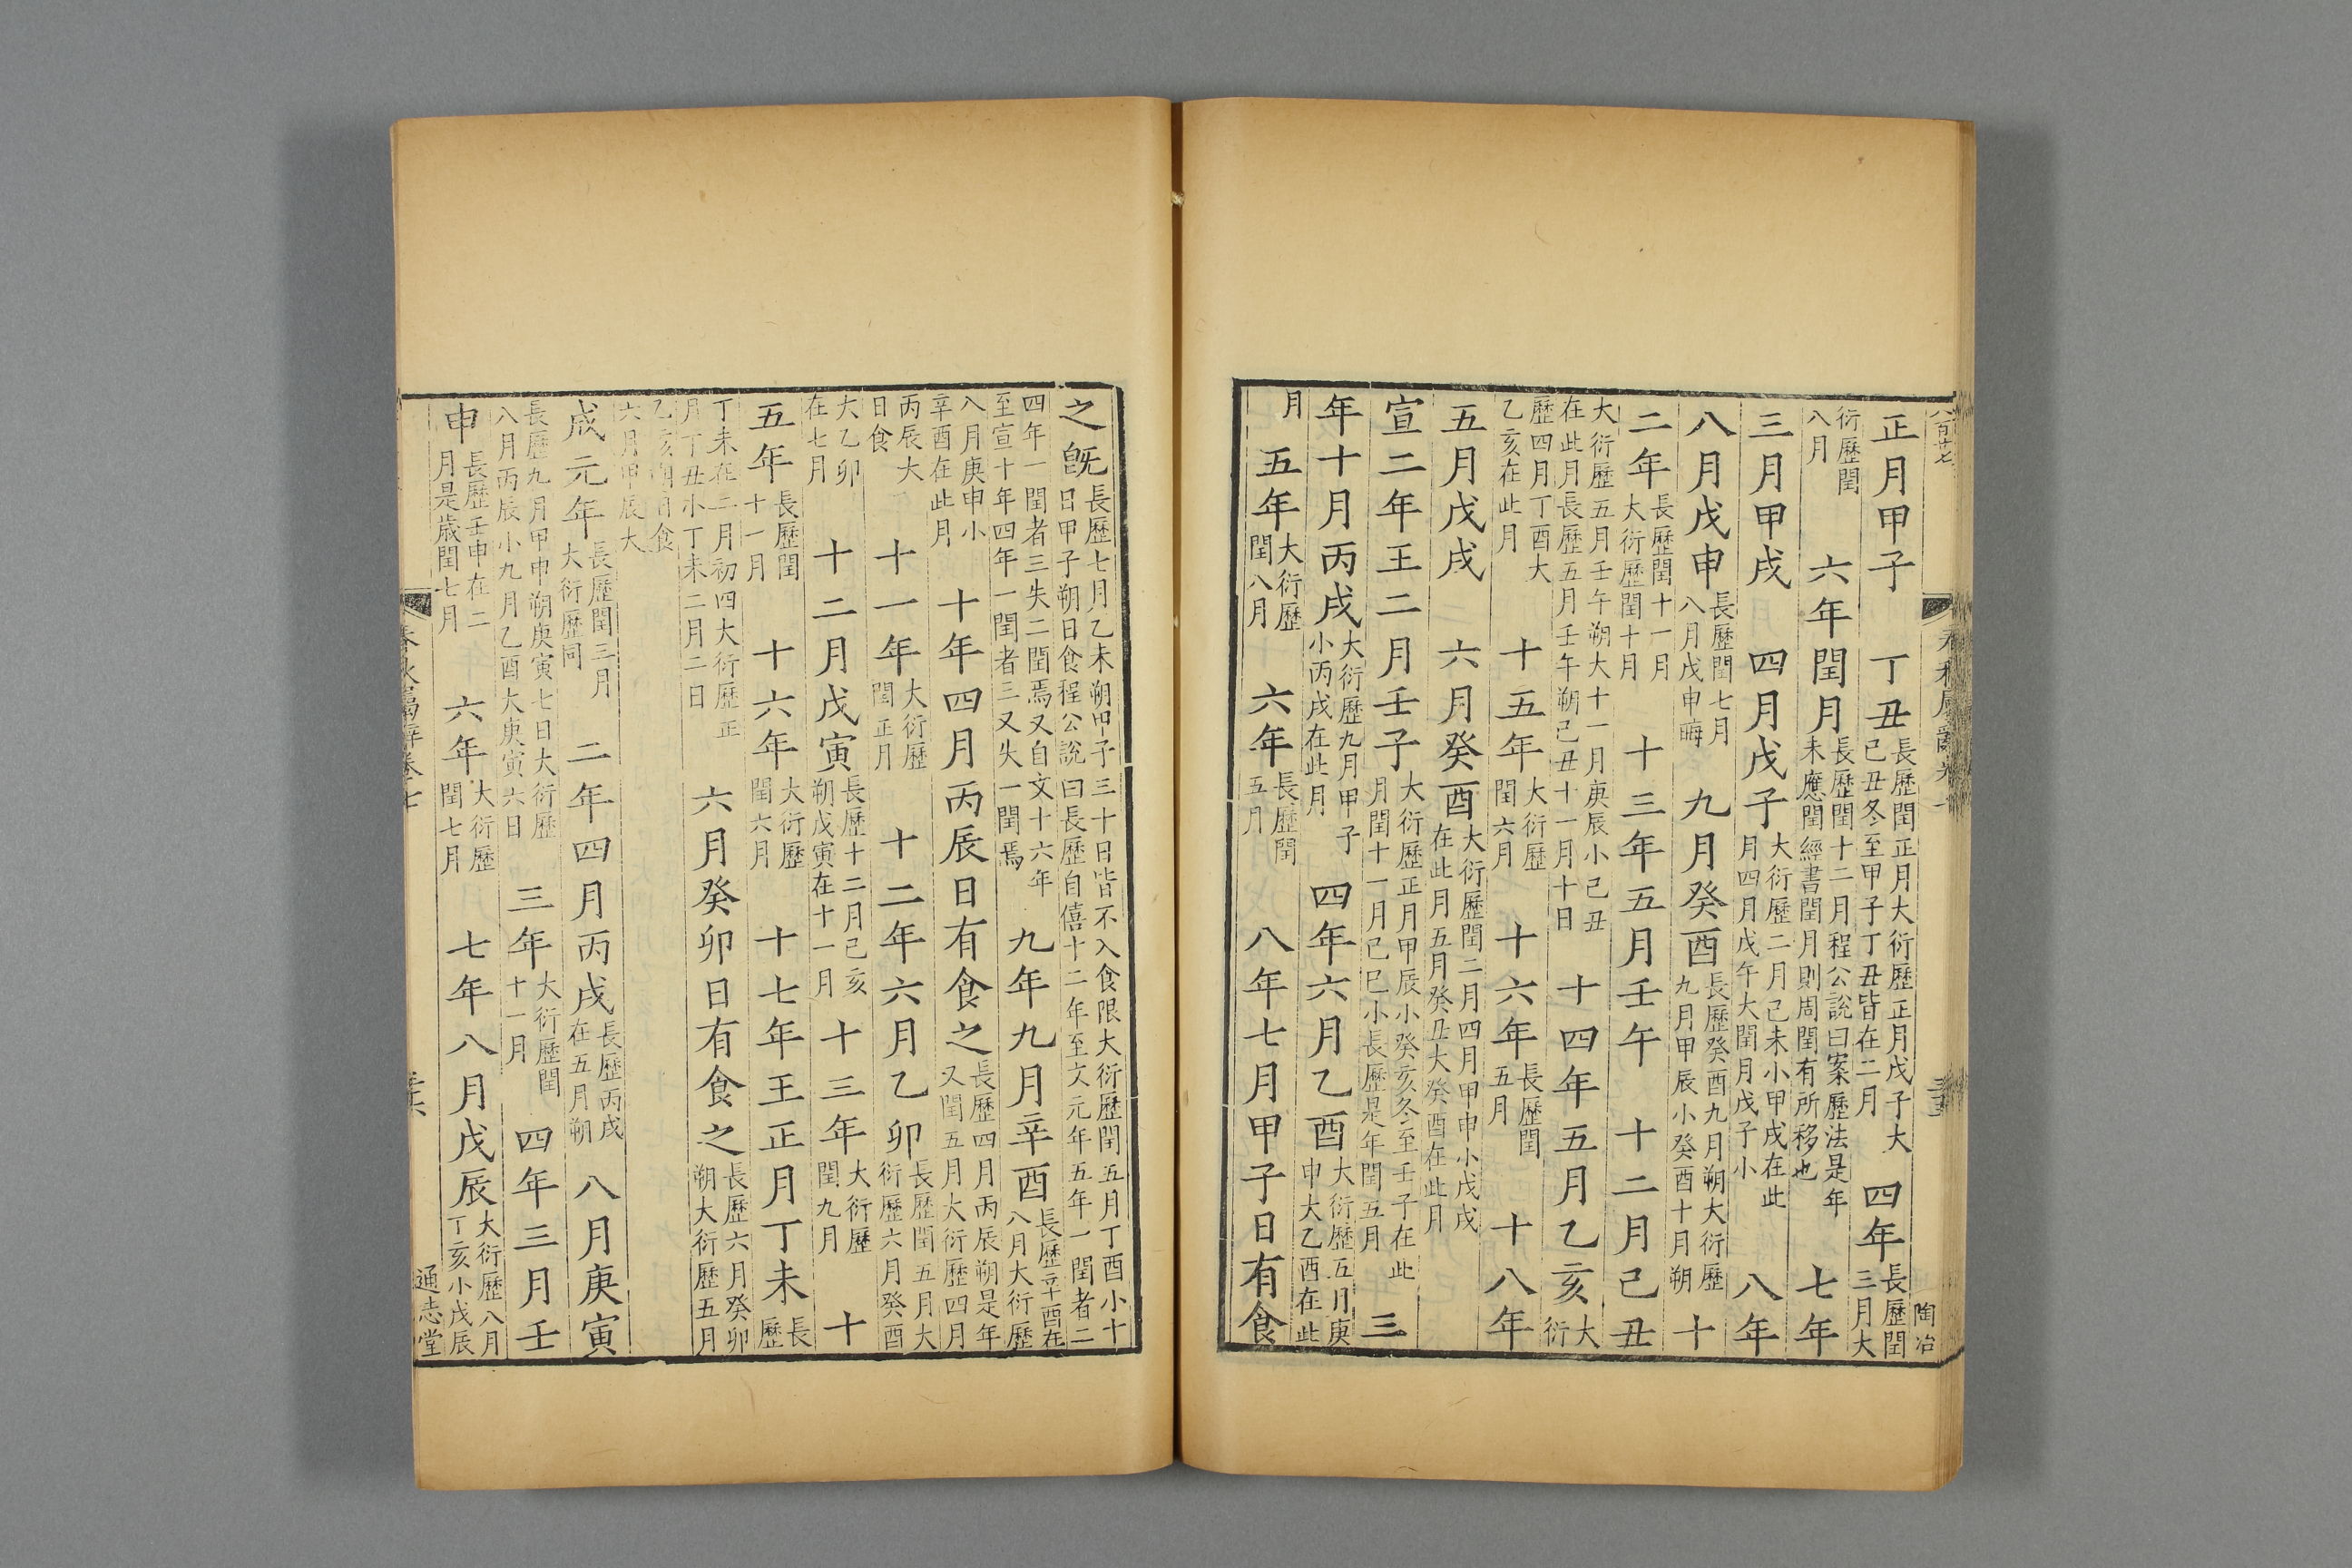 八百廿七
陶冶
正月甲子　丁丑長歷閏正月大衍歷正月戊子大己丑冬至甲子丁丑皆在二月　四年長歷閏三月大
衍歷閏八月　六年閏月長歷閏十二月程公說曰案歷法是年未應閏經書閏月則周閏有所移也　七年
三月甲戌　四月戊子大衍歷二月己未小甲戌在此月四月戊午大閏月戊子小　八年
八月戊申長歷閏七月八月戊申晦　九月癸酉長歷癸酉九月朔大衍歷九月甲辰小癸酉十月朔　十
二年長歷閏十一月大衍歷閏十月　十三年五月壬午　十二月己丑
大衍歷五月壬午朔大十一月庚辰小己丑在此月長歷五月壬午朔己丑十一月十日　十四年五月乙亥大衍
歷四月丁酉大乙亥在此月　十五年大衍歷閏六月　十六年長歷閏五月　十八年
五月戊戌　六月癸酉大衍歷閏二月四月甲申小戊戌在此月五月癸丑大癸酉在此月
宣二年王二月壬子大衍歷正月甲辰小癸亥冬至壬子在此月閏十一月己巳小長歷是年閏五月　三
年十月丙戌大衍歷九月甲子小丙戌在此月　四年六月乙酉大衍歷五月庚申大乙酉在此
月　五年大衍歷閏八月　六年長歷閏五月　八年七月甲子日有食
之旣長歷七月乙未朔甲子三十日皆不入食限大衍歷閏五月丁酉小十日甲子朔日食程公說曰長歷自僖十二年至文元年五年一閏者二
四年一閏者三失二閏焉又自文十六年至宣十年四年一閏者三又失一閏焉　九年九月辛酉長歷辛酉在八月大衍歷
八月庚申小辛酉在此月　十年四月丙辰日有食之長歷四月丙辰朔是年又閏五月大衍歷四月
丙辰大日食　十一年大衍歷閏正月　十二年六月乙卯長歷閏五月大衍歷六月癸酉
大乙卯在七月　十二月戊寅長歷十二月己亥朔戊寅在十一月　十三年大衍歷閏九月　十
五年長歷閏十一月　十六年大衍歷閏六月　十七年王正月丁未長歷
丁未在二月初四大衍歷正月丁丑小丁未二月二日　六月癸卯日有食之長歷六月癸卯朔大衍歷五月
乙亥朔日食六月甲辰大
成元年長歷閏三月大衍歷同　二年四月丙戌長歷丙戌在五月朔　八月庚寅
長歷九月甲申朔庚寅七日大衍歷八月丙辰小九月乙酉大庚寅六日　三年大衍歷閏十一月　四年三月壬
申長歷壬申在二月是歲閏七月　六年大衍歷閏七月　七年八月戊辰大衍歷八月丁亥小戊辰
春秋屬辭卷七
通志堂